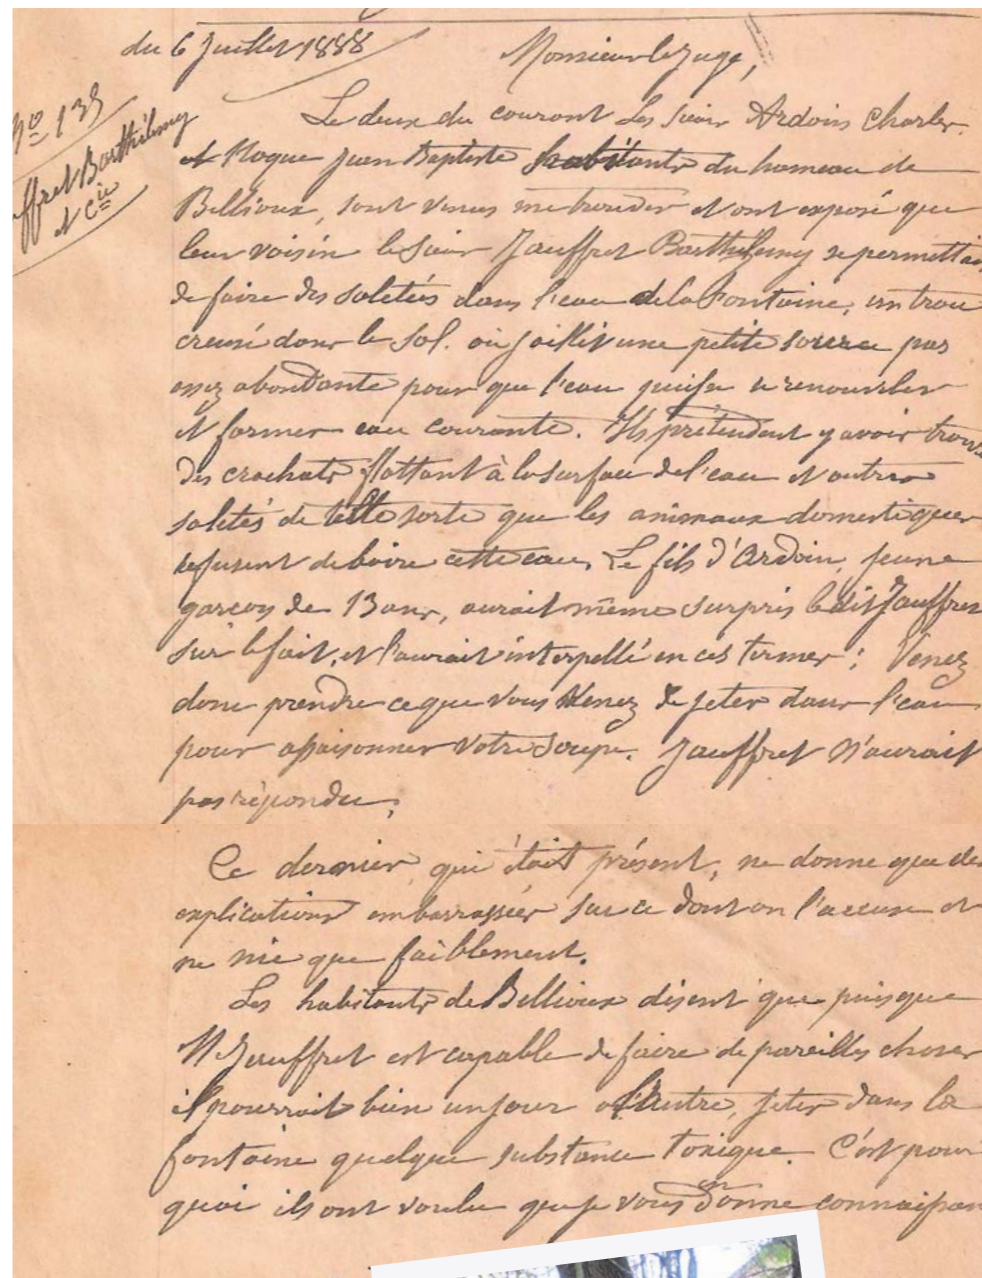 du 6 Juillet 1888
Monsieur le Juge,
No 135
uffret Barthélemy
et Cie
Le deux du courant les sieurs Ardoin Charles
et Roque Jean Baptiste habitants du hameau de
Bellioux, sont venus me trouver et ont exposé que
leur voisin le sieur Jauffret Barthélemy se permettai
de faire des saletés dans l'eau de la fontaine, un trou
creusé dans le sol. où jaillit une petite source pas
assez abondante pour que l'eau puisse se renouveler
et former eau courante. Ils prétendent y avoir trouv
des crachats flottant à la surface de l'eau et autres
saletés de telle sorte que les animaux domestiques
refusent de boire cette eau. Le fils d'Ardoin, jeune
garçon de 13 ans, aurait même surpris ledit Jauffret
sur le fait, et l'aurait interpellé en ces termes : Venez
donc prendre ce que vous venez de jeter dans l'eau
pour assaisonner votre soupe. Jauffret n'aurait
pas répondu.
Ce dernier, qui était présent, ne donne que des
explications embarrassées sur ce dont on l'accuse et
ne nie que faiblement.
Les habitants de Bellioux disent que puisque
M Jauffret est capable de faire de pareilles choses
il pourrait bien un jour ou l'autre, jeter dans la
fontaine quelque substance toxique. C'est pour
quoi ils ont voulu que je vous en donne connaissan